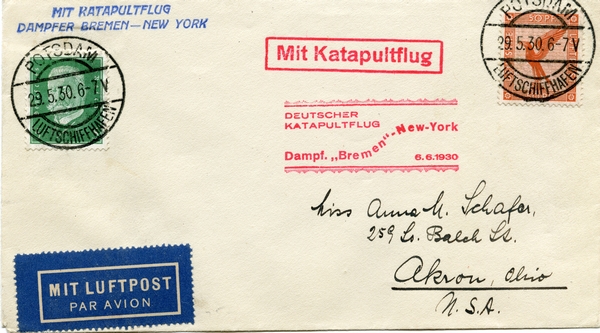 MIT KATAPULTFLUG
DAMPFER BREMEN—NEW YORK
POTSDAM
29.5.30.6-7V
LUFTSCHIFFHAFEN
POTSDAM
50 PF
29.5.30.6-7V
LUFTSCHIFFHAFEN
Mit Katapultflug
DEUTSCHER
KATAPULTFLUG
Dampf. „Bremen"-New-York
6.6.1930
Miss Anna M. Schafer,
259 So. Balch St.
Akron, Ohio
U.S.A.
MIT LUFTPOST
PAR AVION